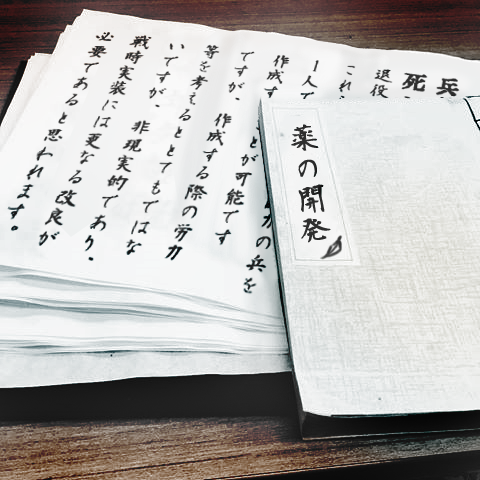 兵
死
退役
これ
1人で
作成す
ですが、
とが可能です
力の兵を
作成する際の労力
等を考えるととてもではな
いですが、非現実的であり、
戦時実装には更なる改良が
必要であると思われます。
薬の開発